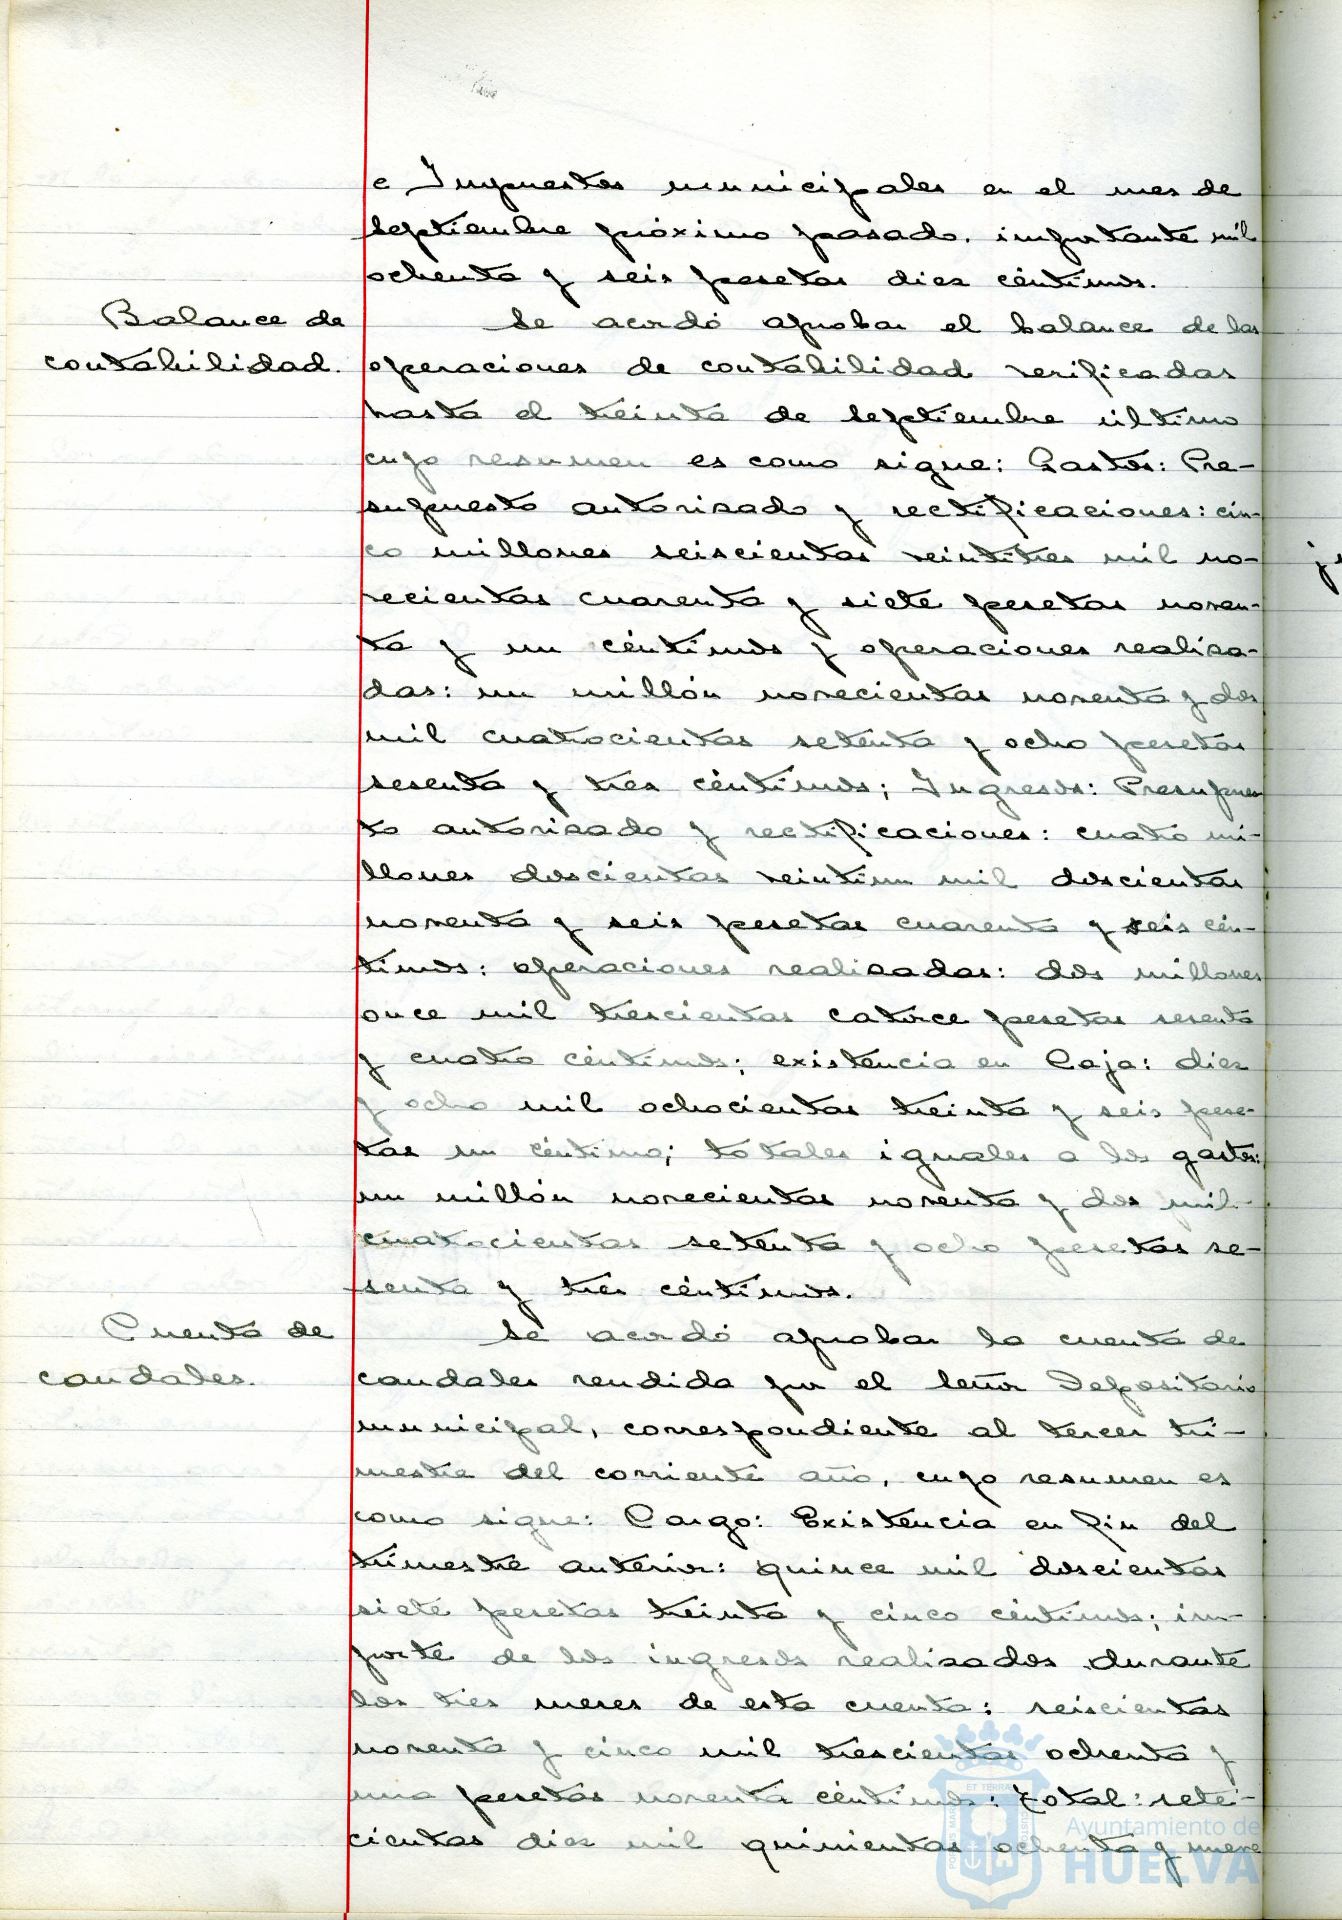 e Impuestos municipales en el mes de
septiembre próximo pasado, importante mil
ochenta y seis pesetas diez céntimos.
Balance de
contabilidad.
Se acordó aprobar el balance de las
operaciones de contabilidad verificadas
hasta el treinta de septiembre último
cuyo resumen es como sigue: Gastos: Pre-
supuesto autorizado y rectificaciones: cin-
co millones seiscientas veintitres mil no-
vecientas cuarenta y siete pesetas noven-
ta y un céntimos y operaciones realiza-
das: un millón novecientas noventa y dos
mil cuatrocientas setenta y ocho pesetas
sesenta y tres céntimos; Ingresos: Presupues
to autorizado y rectificaciones: cuatro mi-
llones doscientas veintiun mil doscientas
noventa y seis pesetas cuarenta y seis cén-
timos: operaciones realizadas: dos millones
once mil trescientas catorce pesetas sesenta
y cuatro céntimos; existencia en Caja: diez
y ocho mil ochocientas treinta y seis pese-
tas un céntimo; totales iguales a los gastos:
un millón novecientas noventa y dos mil
cuatrocientas setenta y ocho pesetas se-
senta y tres céntimos.
Cuenta de
caudales.
Se acordó aprobar la cuenta de
caudales rendida por el señor Depositario
municipal, correspondiente al tercer tri-
mestre del corriente año, cuyo resumen es
como sigue: Cargo: Existencia en fin del
trimestre anterior: quince mil doscientas
siete pesetas treinta y cinco céntimos; im-
porte de los ingresos realizados durante
los tres meses de esta cuenta: seiscientas
noventa y cinco mil trescientas ochenta y
una pesetas noventa céntimos: Total: sete-
cientas diez mil quinientas ochenta y nueve
ET TERRA
Ayuntamiento de
HUELVA